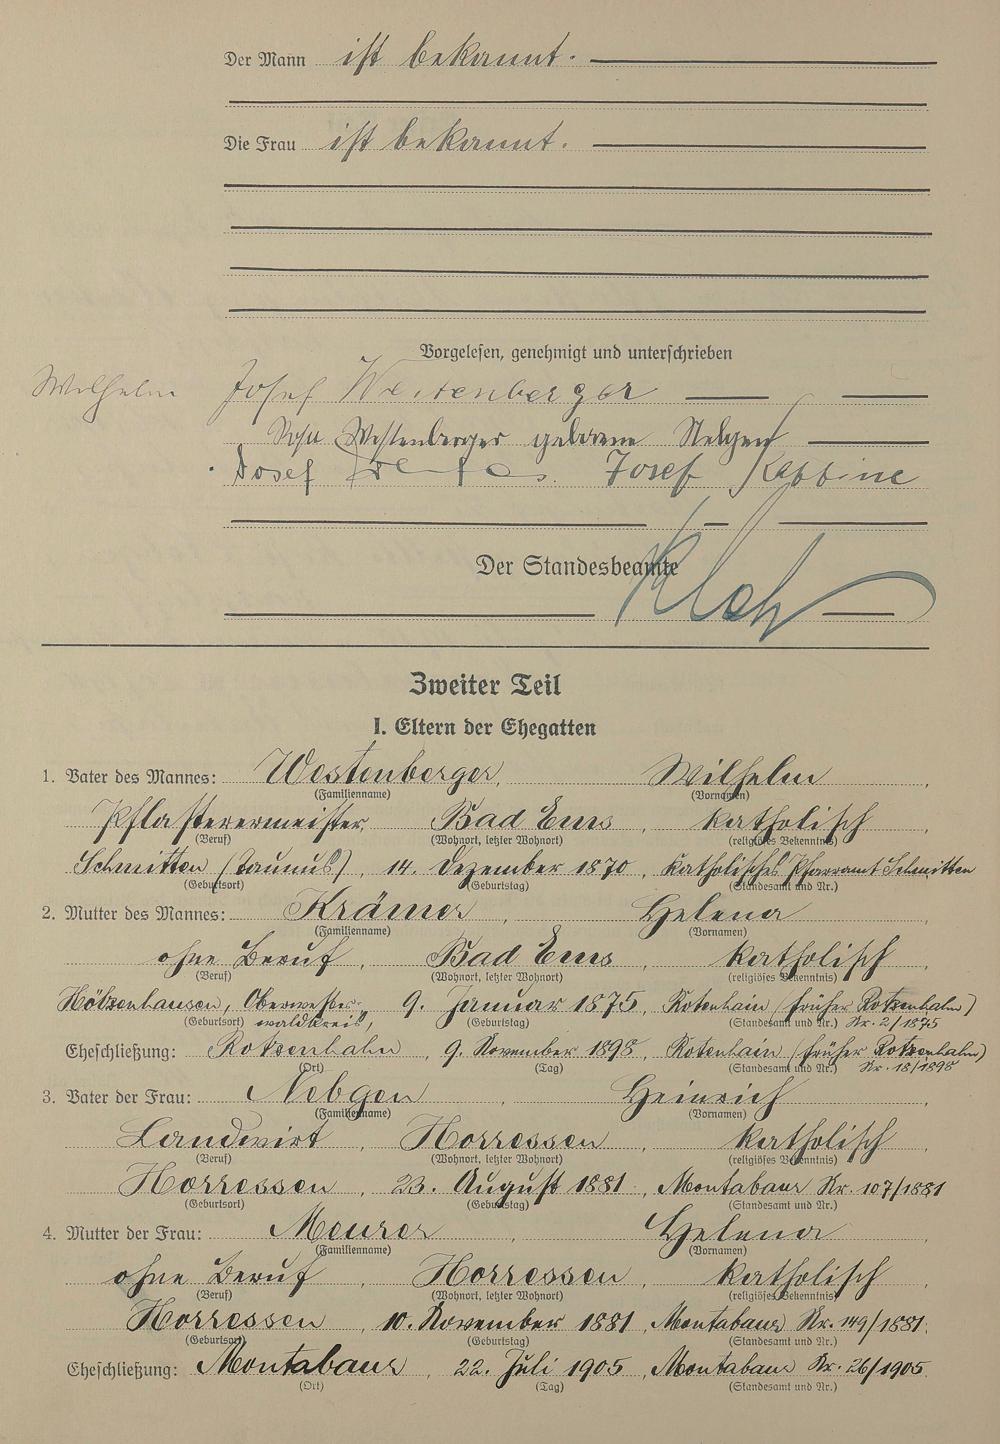 Der Mann ist bekannt.
Die Frau ist bekannt.
Vorgelesen, genehmigt und unterschrieben
Wilhelm Josef Westenberger
Westenberger geborene Nebgen
Josef Josef
Der Standesbeamte
Zweiter Teil
I. Eltern der Ehegatten
1. Vater des Mannes: Westenberger, Wilhelm
(Familienname) (Vornamen)
Pflasterermeister, Bad Ems, katholisch,
(Beruf) (Wohnort, letzter Wohnort) (religiöses Bekenntnis)
Schmitten (Taunus), 14. Dezember 1870, Katholisches Pfarramt Schmitten
(Geburtsort) (Geburtstag) (Standesamt und Nr.)
2. Mutter des Mannes: Krämer, Helena
(Familienname) (Vornamen)
ohne Beruf, Bad Ems, katholisch,
(Beruf) (Wohnort, letzter Wohnort) (religiöses Bekenntnis)
Hötzenhausen, Oberwester- 9. Januar 1875, Rotenhain (früher Rotzenhahn)
(Geburtsort) waldkreis, (Geburtstag) (Standesamt und Nr.) Nr. 2/1875
Eheschließung: Rotzenhahn, 9. November 1898, Rotenhain (früher Rotzenhahn)
(Ort) (Tag) (Standesamt und Nr.) Nr. 18/1898
3. Vater der Frau: Nebgen, Heinrich,
(Familienname) (Vornamen)
Landwirt, Horressen, katholisch,
(Beruf) (Wohnort, letzter Wohnort) (religiöses Bekenntnis)
Horressen, 23. August 1881, Montabaur Nr. 107/1881
(Geburtsort) (Geburtstag) (Standesamt und Nr.)
4. Mutter der Frau: Meurer, Helena,
(Familienname) (Vornamen)
ohne Beruf, Horressen, katholisch,
(Beruf) (Wohnort, letzter Wohnort) (religiöses Bekenntnis)
Horressen, 10. November 1881, Montabaur Nr. 149/1881.
(Geburtsort) (Geburtstag) (Standesamt und Nr.)
Eheschließung: Montabaur, 22. Juli 1905, Montabaur Nr. 26/1905.
(Ort) (Tag) (Standesamt und Nr.)